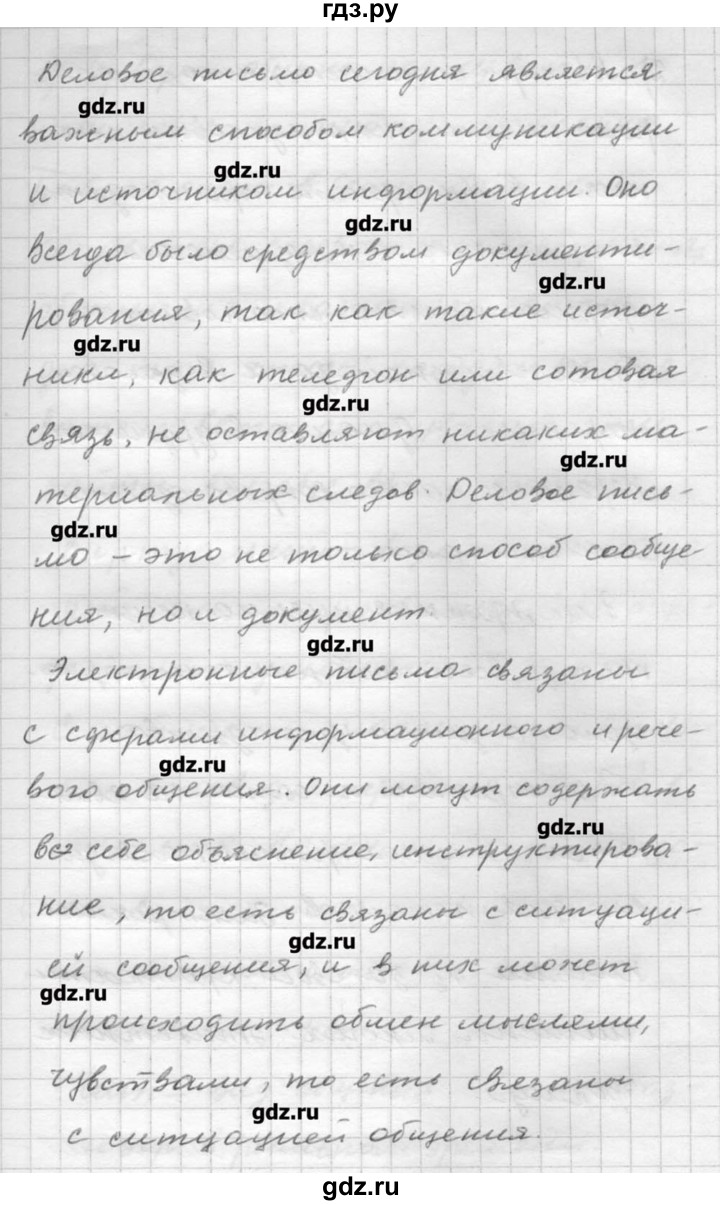 гдз.ру
Деловое письмо сегодня является
gdz.ru
важным способом коммуникации
gdz.ru
и источником информации. Оно
gdz.ru
всегда было средством документи-
gdz.ru
рования, так как такие источ-
gdz.ru
ники, как телефон или сотовая
gdz.ru
связь, не оставляют никаких ма-
gdz.ru
териальных следов. Деловое пись-
gdz.ru
мо – это не только способ сообще-
ния, но и документ.
gdz.ru
Электронные письма связаны
с сферами информационного и рече-
gdz.ru
вого общения. Они могут содержать
gdz.ru
в себе объяснение, инструктирова-
ние, то есть связаны с ситуаци-
gdz.ru
ей сообщения, и в них может
gdz.ru
происходить обмен мыслями,
чувствами, то есть связаны
gdz.ru
с ситуацией общения.
gdz.ru